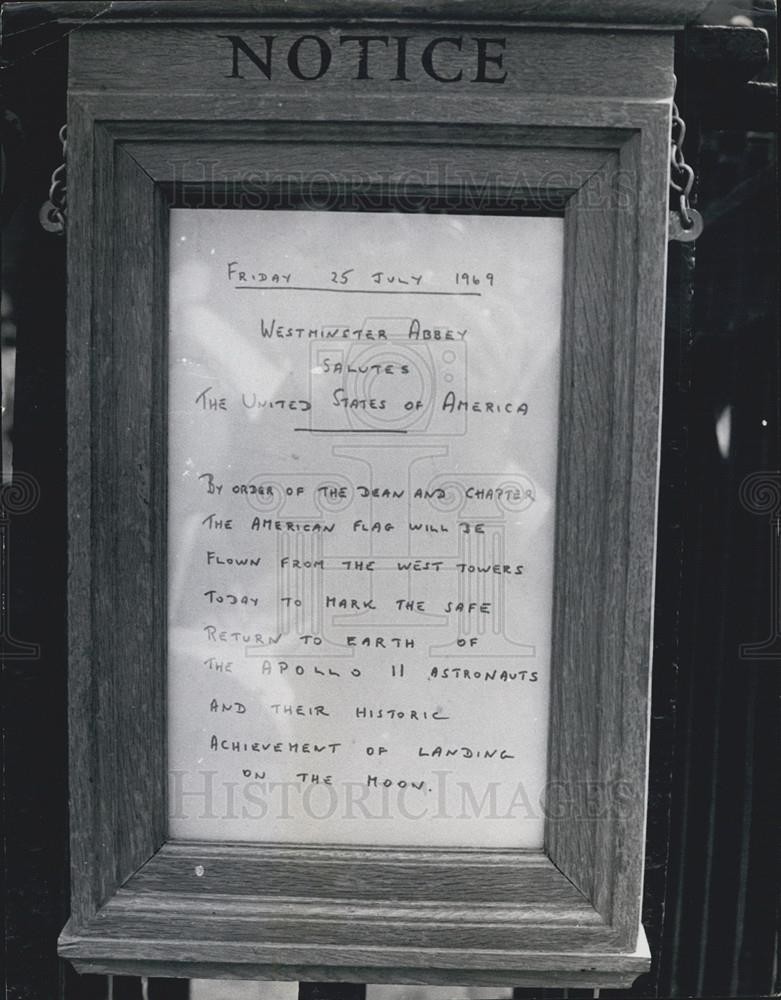 NOTICE
FRIDAY 25 JULY 1969
WESTMINSTER ABBEY
SALUTES
THE UNITED STATES OF AMERICA
BY ORDER OF THE DEAN AND CHAPTER
THE AMERICAN FLAG WILL BE
FLOWN FROM THE WEST TOWERS
TODAY TO MARK THE SAFE
RETURN TO EARTH OF
THE APOLLO 11 ASTRONAUTS
AND THEIR HISTORIC
ACHIEVEMENT OF LANDING
ON THE MOON.
HISTORICIMAGES
HISTORICIMAGES